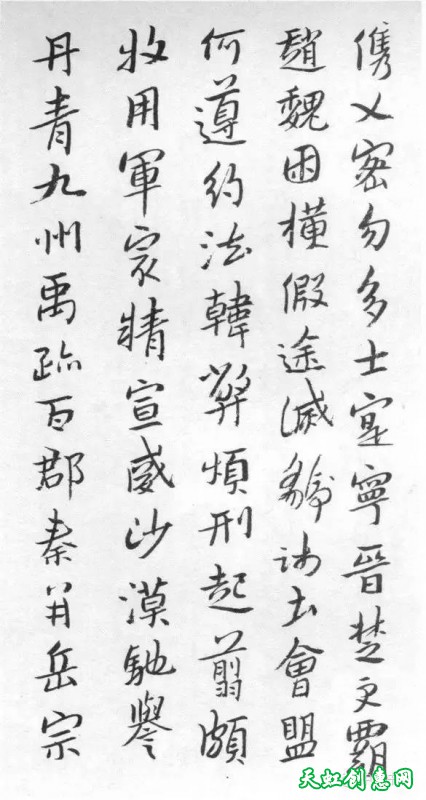 儁乂密勿多士寔寧晉楚更霸
趙魏困橫假途滅虢踐土會盟
何遵約法韓弊煩刑起翦頗
牧用軍宼精宣威沙漠馳譽
丹青九州禹跡百郡秦并岳宗
天虹创意网